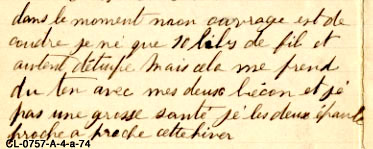 dans le moment mon ouvrage est de
coudre je né que 10 lib's de fil et
autent détoupe Mais cela me prend
du ten avec mes deux lécon et jé
pas une grosse santé jé les deux épaule
proche a proche cette hiver
CL-0757-A-4-a-74